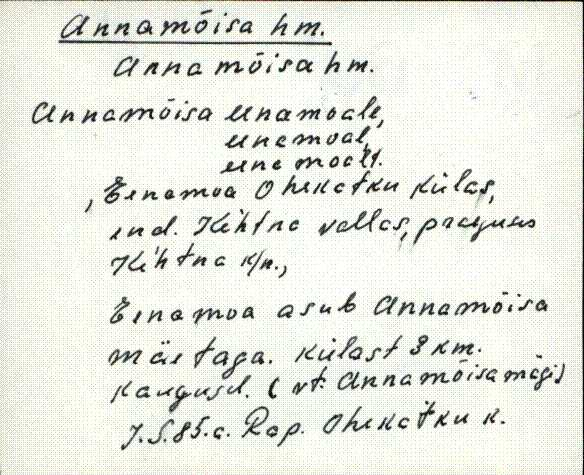 Annamõisa hm.
Anna mõisa hm.
Annamõisa einamoale,
einamoal,
einamoalt.
, Einamoa Ohekatku külas,
end. Kehtna vallas, praeguses
Kehtna k/n.,
Einamoa asub Annamõisa
mäe taga. Külast 3 km.
kaugusel. (vt. Annamõisa mägi)
7.5.85.a. Rap. Ohekatku k.